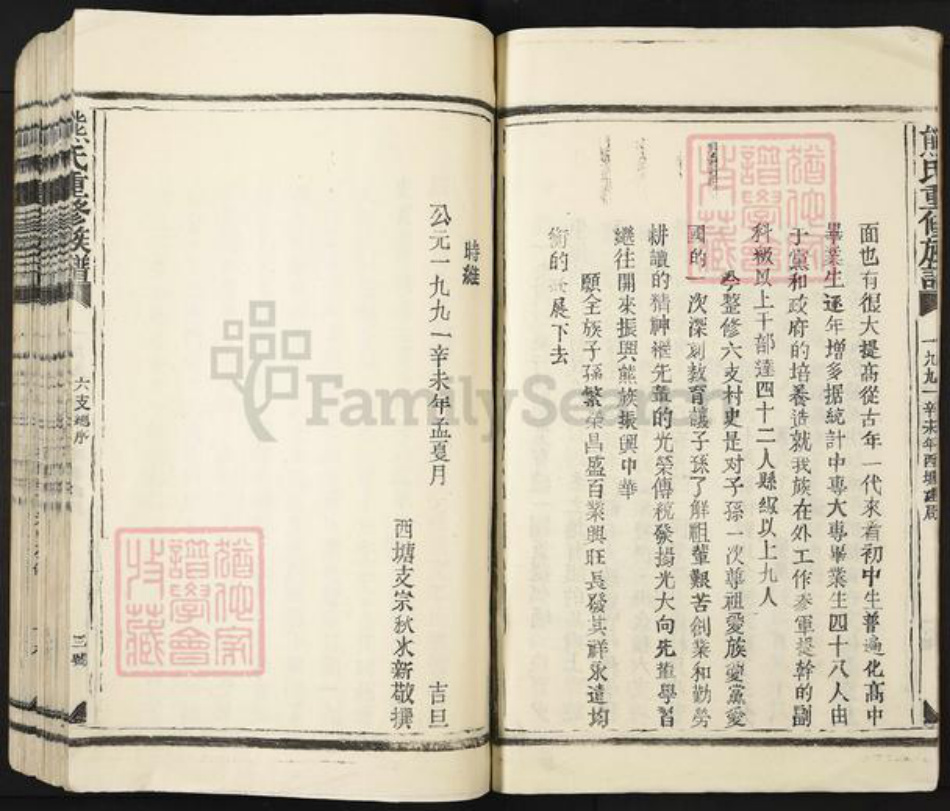 熊氏重修族譜
一九九一辛未年西塘建辰
面也有很大提高從古年一代來看初中生普遍化高中
畢業生逐年增多据統計中專大專畢業生四十八人由
于黨和政府的培養造就我族在外工作參軍提幹的副
科級以上干部達四十二人縣級以上九人
今整修六支村史是对子孫一次尊祖愛族愛黨愛
國的一次深刻教育讓子孫了解祖輩艱苦創業和勤勞
耕讀的精神襁先輩的光榮傳稅發揚光大向先輩學習
繼往開來振興熊族振興中華
願全族子孫繁榮昌盛百業興旺長發其祥永遠均
衡的發展下去
時維
公元一九九一辛未年孟夏月
吉旦
西塘支宗秋水新敬撰
熊氏重修族譜
六支總序
三號
FamilySearch
譜學會
收藏
譜學會
收藏